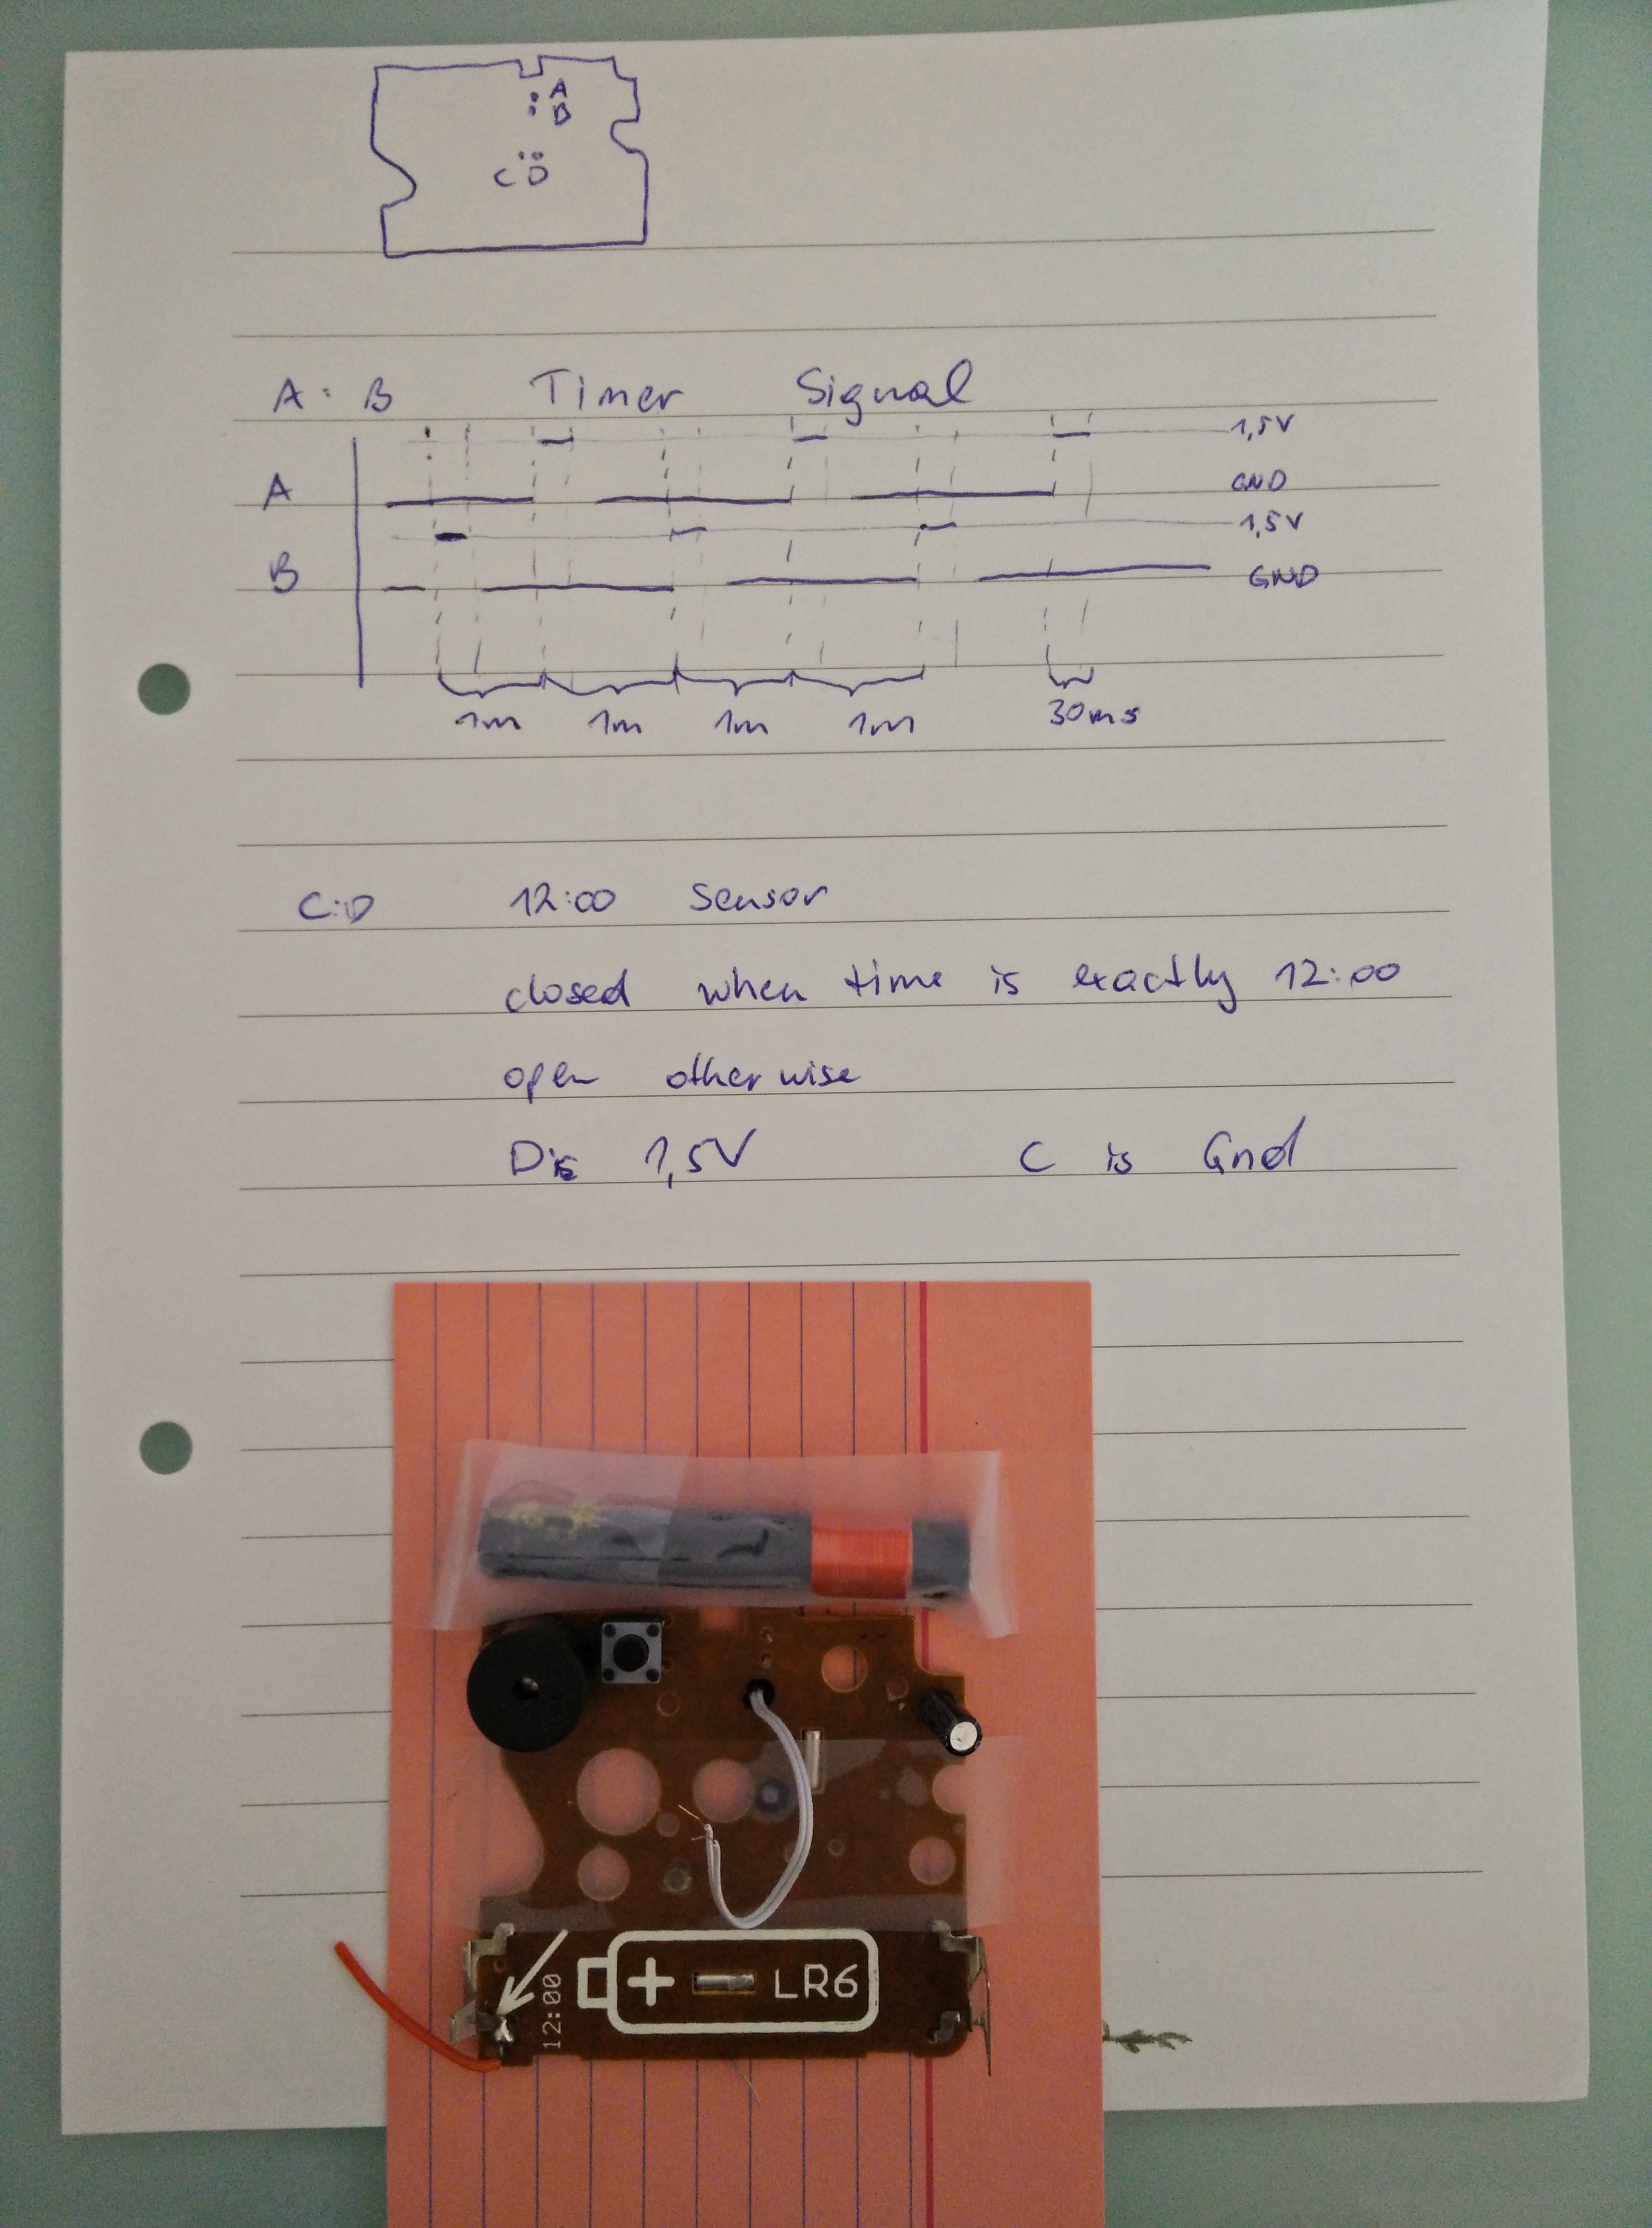 A
B
C D
A : B Timer Signal
1,5V
A GND
1,5V
B GND
1m 1m 1m 1m 30ms
C:D 12:00 Sensor
closed when time is exactly 12:00
open otherwise
D is 1,5V C is Gnd
12:00 + - LR6